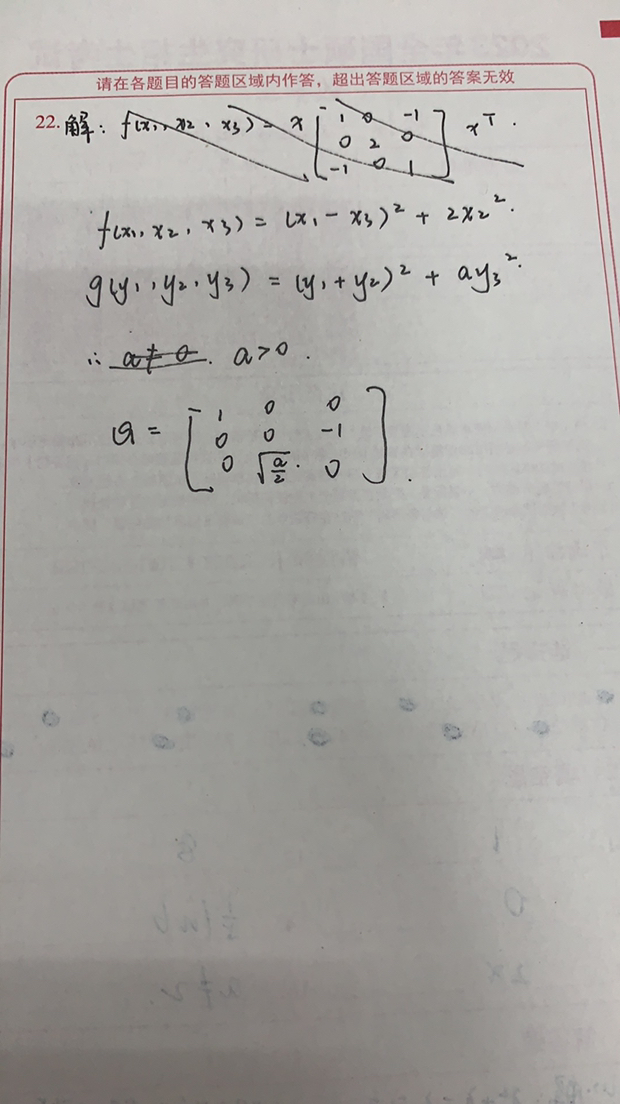 请在各题目的答题区域内作答，超出答题区域的答案无效
22. 解: f(x₁, x₂, x₃) = x [1 0 -1; 0 2 0; -1 0 1] xᵀ.
f(x₁, x₂, x₃) = (x₁ - x₃)² + 2x₂².
g(y₁, y₂, y₃) = (y₁ + y₂)² + ay₃².
∴ a ≠ 0. a > 0.
Q = [1 0 0; 0 0 -1; 0 √(a/2) 0].